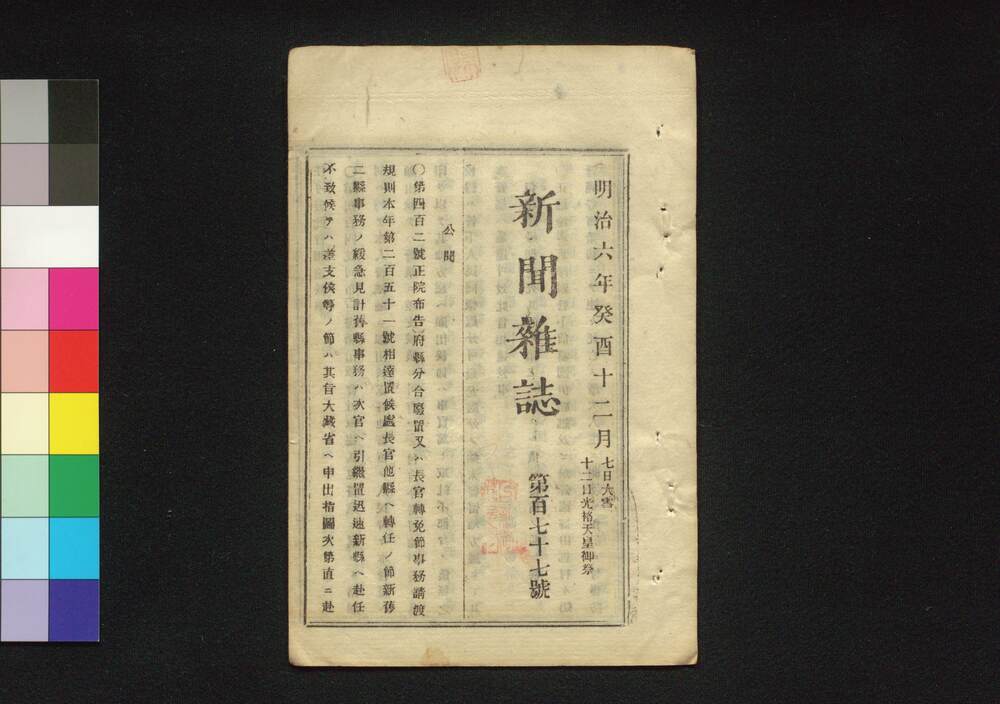 明治六年癸酉十二月
七日大雪
十二日光格天皇御祭
新聞雜誌
第百七十七號
公聞
〇第四百二號正院布告府縣分合廢置又ハ長官轉免節事務請渡
規則本年第二百五十一號相達置候處長官他縣ヘ轉任ノ節新舊
二縣事務ノ緩急見計舊縣事務ハ次官ヘ引繼置迅速新縣ヘ赴任
不致候テハ差支候等ノ節ハ其旨大藏省ヘ申出指圖次第直ニ赴